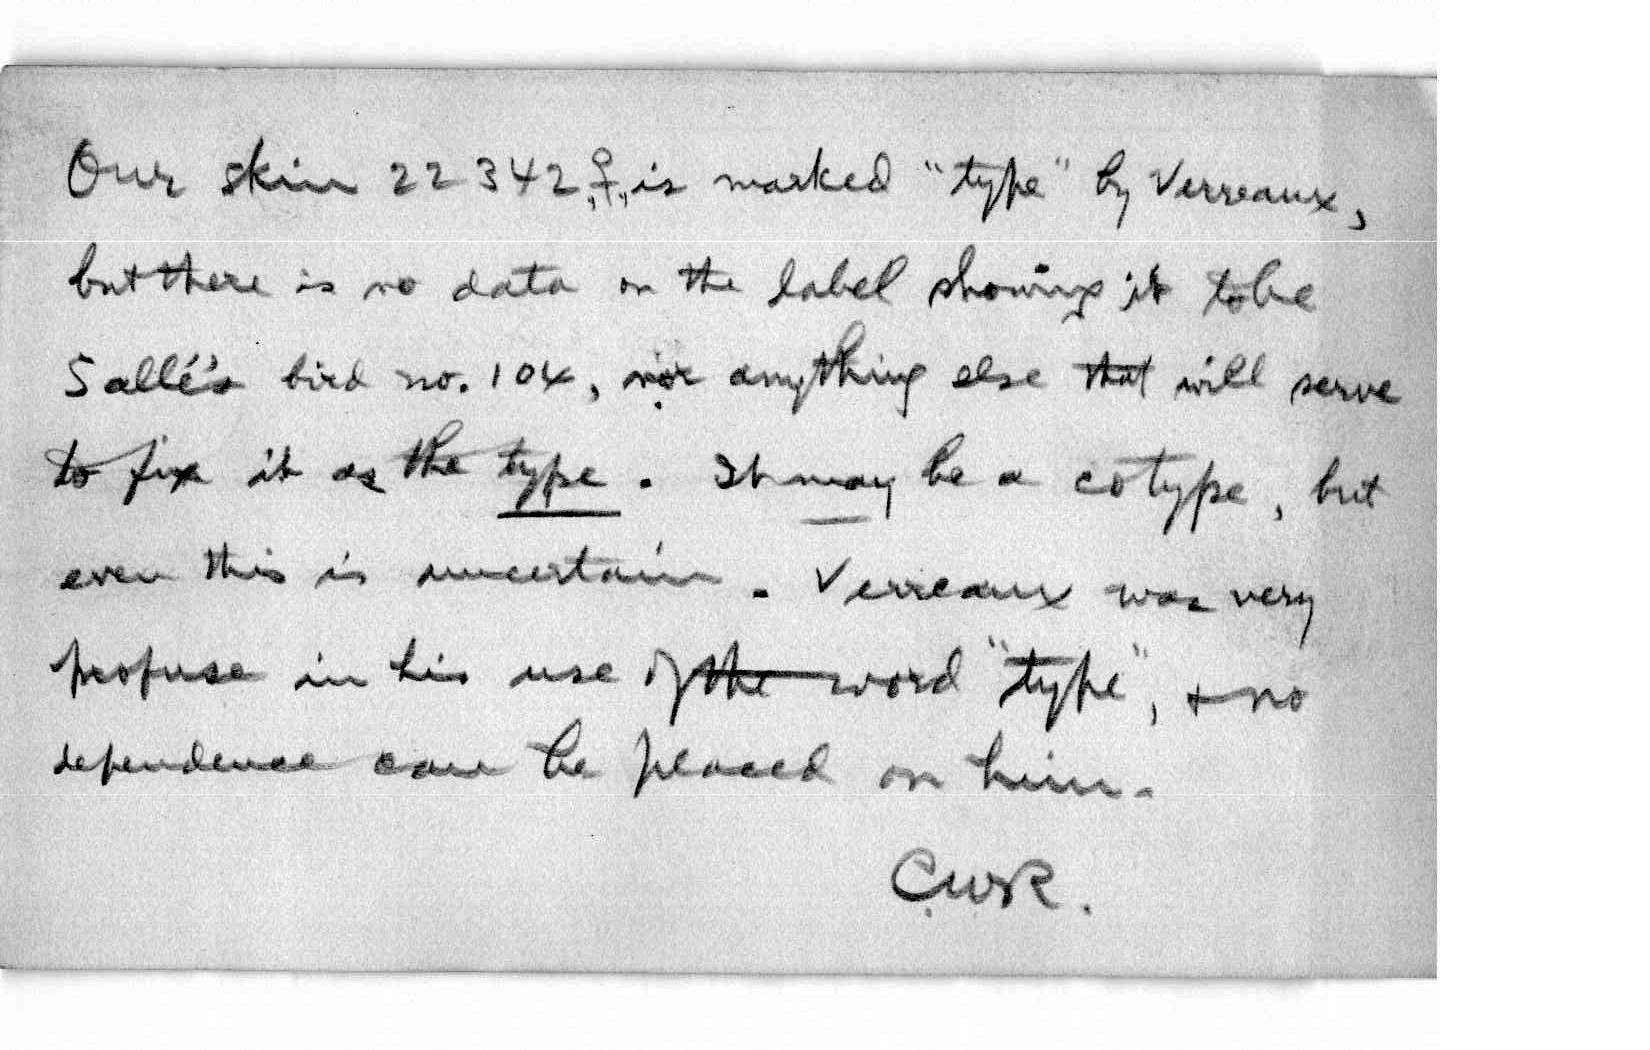 Our skin 22342, ♀, is marked "type" by Verreaux,
but there is no data on the label showing it to be
Sallé's bird no. 104, nor anything else that will serve
to fix it as the type. It may be a cotype, but
even this is uncertain. Verreaux was very
profuse in his use of the word "type", & no
dependence can be placed on him.
C.W.R.